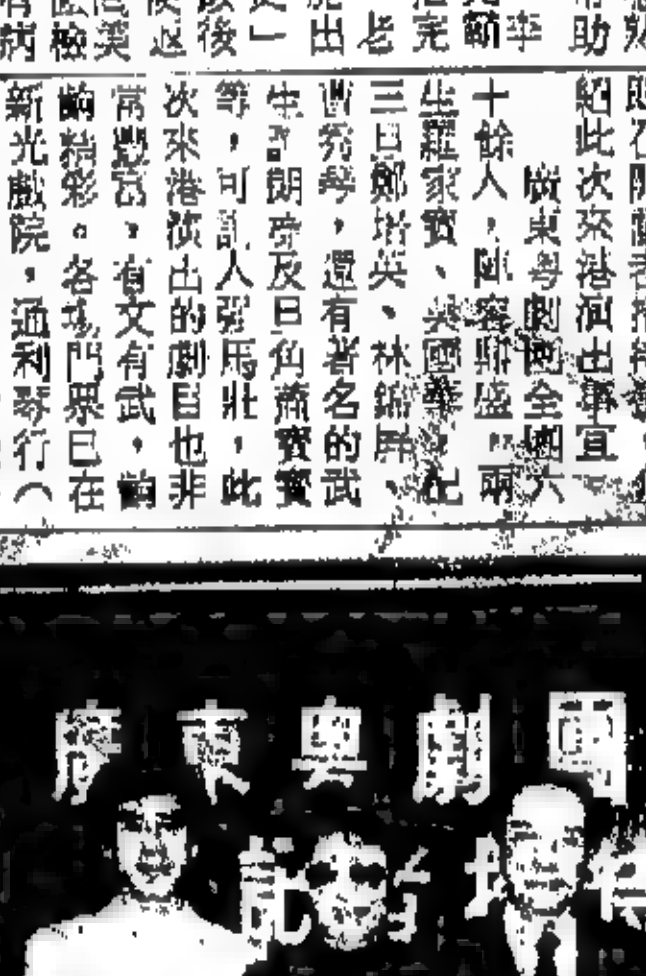 助
完
出
後
檢
病
紹此次來港演出事宜
廣東粵劇團全團六
十餘人，陣容鼎盛，兩
生羅家寶、吳國華，配
三旦鄭培英、林錦屏、
曹秀琴，還有著名的武
生 及旦角 寶寶
等，可說人强馬壯，此
次來港演出的劇目也非
常豐富，有文有武，齣
齣精彩。各場門票已在
新光戲院，通利琴行（
廣東粵劇團
記者招待